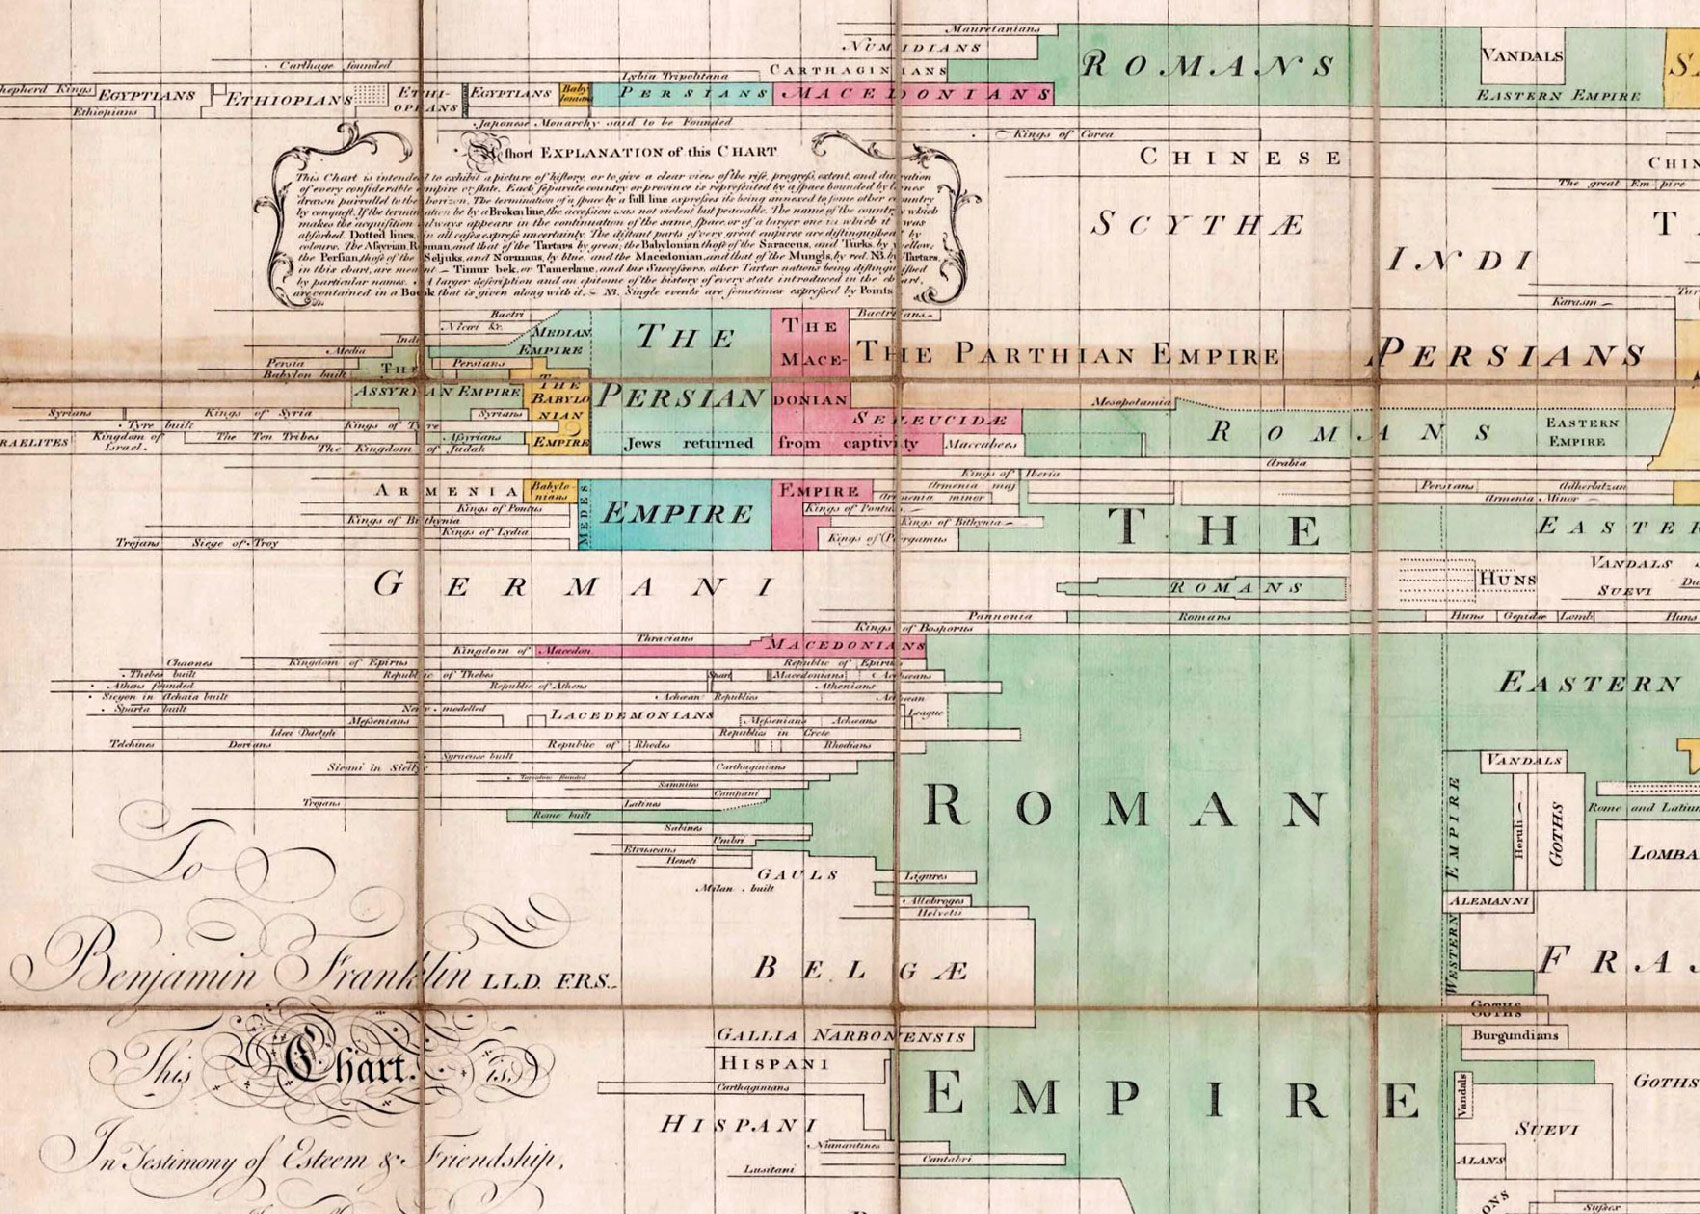 Mauretanians
NUMIDIANS
ROMANS
VANDALS
Carthage founded
CARTHAGINIANS
Lybia Tripolitana
Shepherd Kings
EGYPTIANS
ETHIOPIANS
ETHI-
OPEANS
EGYPTIANS
Baby
lonians
PERSIANS
MACEDONIANS
EASTERN EMPIRE
Ethiopians
Japonese Monarchy said to be Founded
Kings of Corea
CHINESE
The great Empire
A short EXPLANATION of this CHART
This Chart is intended to exhibit a picture of history, or to give a clear view of the rise, progress, extent, and duration
of every considerable empire or state. Each separate country or province is represented by a space bounded by lines
drawn parrallel to the horizon. The termination of a space by a full line expresses its being annexed to some other country
by conquest. If the termination be by a Broken line, the accession was not violent but peaceable. The name of the country which
makes the acquisition always appears in the continuation of the same space, or of a larger one in which it was
absorbed. Dotted lines, in all cases express uncertainty. The distant parts of very great empires are distinguished by
colours. The Assyrian, Roman, and that of the Tartars by green; the Babylonian those of the Saracens, and Turks, by yellow;
the Persian, those of the Seljuks, and Normans, by blue, and the Macedonian, and that of the Mungls, by red. NB. by Tartars,
in this chart, are meant Timur bek, or Tamerlane, and his Successors, other Tartar nations being distinguished
by particular names. A larger description and an epitome of the history of every state introduced in the chart,
are contained in a Book that is given along with it. NB. Single events are sometimes expressed by Points
SCYTHÆ
INDI
Karasm
Bactri
Bactrians
Niewi &c.
MEDIAN
EMPIRE
THE
THE
MACE-
THE PARTHIAN EMPIRE
PERSIANS
Indi
Media
Persia
Persians
Babylon built
THE
ASSYRIAN EMPIRE
THE
BABYLO
NIAN
EMPIRE
PERSIAN
DONIAN
Mesopotamia
Syrians
Kings of Syria
Syrians
SELEUCIDÆ
Tyre built
Kings of Tyre
ROMANS
EASTERN
EMPIRE
RAELITES
Kingdom of
Israel.
The Ten Tribes
Assyrians
Jews returned
from captivity
Maccabees
The Kingdom of Judah
Arabia
Kings of Iberia
ARMENIA
Babylo-
nians
MEDES
EMPIRE
EMPIRE
Armenia maj
Armenia minor
Persians
Adherbitzan
Armenia Minor
Kings of Pontus
Kings of Pontus
Kings of Bithynia
Kings of Bithynia
THE
EASTER
Kings of Lydia
Kings of Pergamus
Trojans
Siege of Troy
GERMANI
ROMANS
HUNS
VANDALS
SUEVI
Pannonia
Romans
Huns
Gepidæ
Lomb
Huns
Kings of Bosporus
Thracians
MACEDONIANS
Kingdom of Macedon
Chaones
Kingdom of Epirus
Republic of Epirus
Thebes built
Republic of Thebes
Spart
Macedonians
Achæans
Athens founded
Republic of Athens
Athenians
EASTERN
Sicyon in Achaia built
Achæan Republics
Achæan
League
Sparta built
New modelled
LACEDEMONIANS
Messenians
Messenians
Achæans
Idæi Dactyli
Republics in Crete
Telchines
Dorians
Republic of Rhodes
Rhodians
Syracuse built
Sicani in Sicily
Carthaginians
VANDALS
Tarentum founded
Samnites
Campani
Trojans
Latines
Rome built
ROMAN
Rome and Latium
Sabines
Umbri
Etruscans
Heneti
LOMBA
GAULS
Ligures
Milan built
Allobroges
Helvetii
Heruli
GOTHS
WESTERN EMPIRE
ALEMANNI
BELGÆ
FRA
GOTHS
GALLIA NARBONENSIS
Burgundians
HISPANI
Carthaginians
EMPIRE
GOTHS
Vandals
HISPANI
SUEVI
Numantines
Cantabri
Lusitani
ALANS
Sussex
To
Benjamin Franklin LL.D. F.R.S.
This Chart is,
In Testimony of Esteem & Friendship,